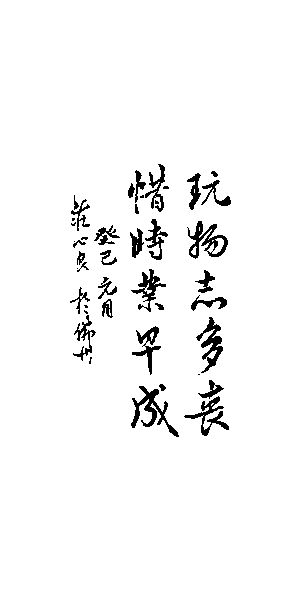 玩物志多丧
惜時業早成
癸巳元月
莊心良 於